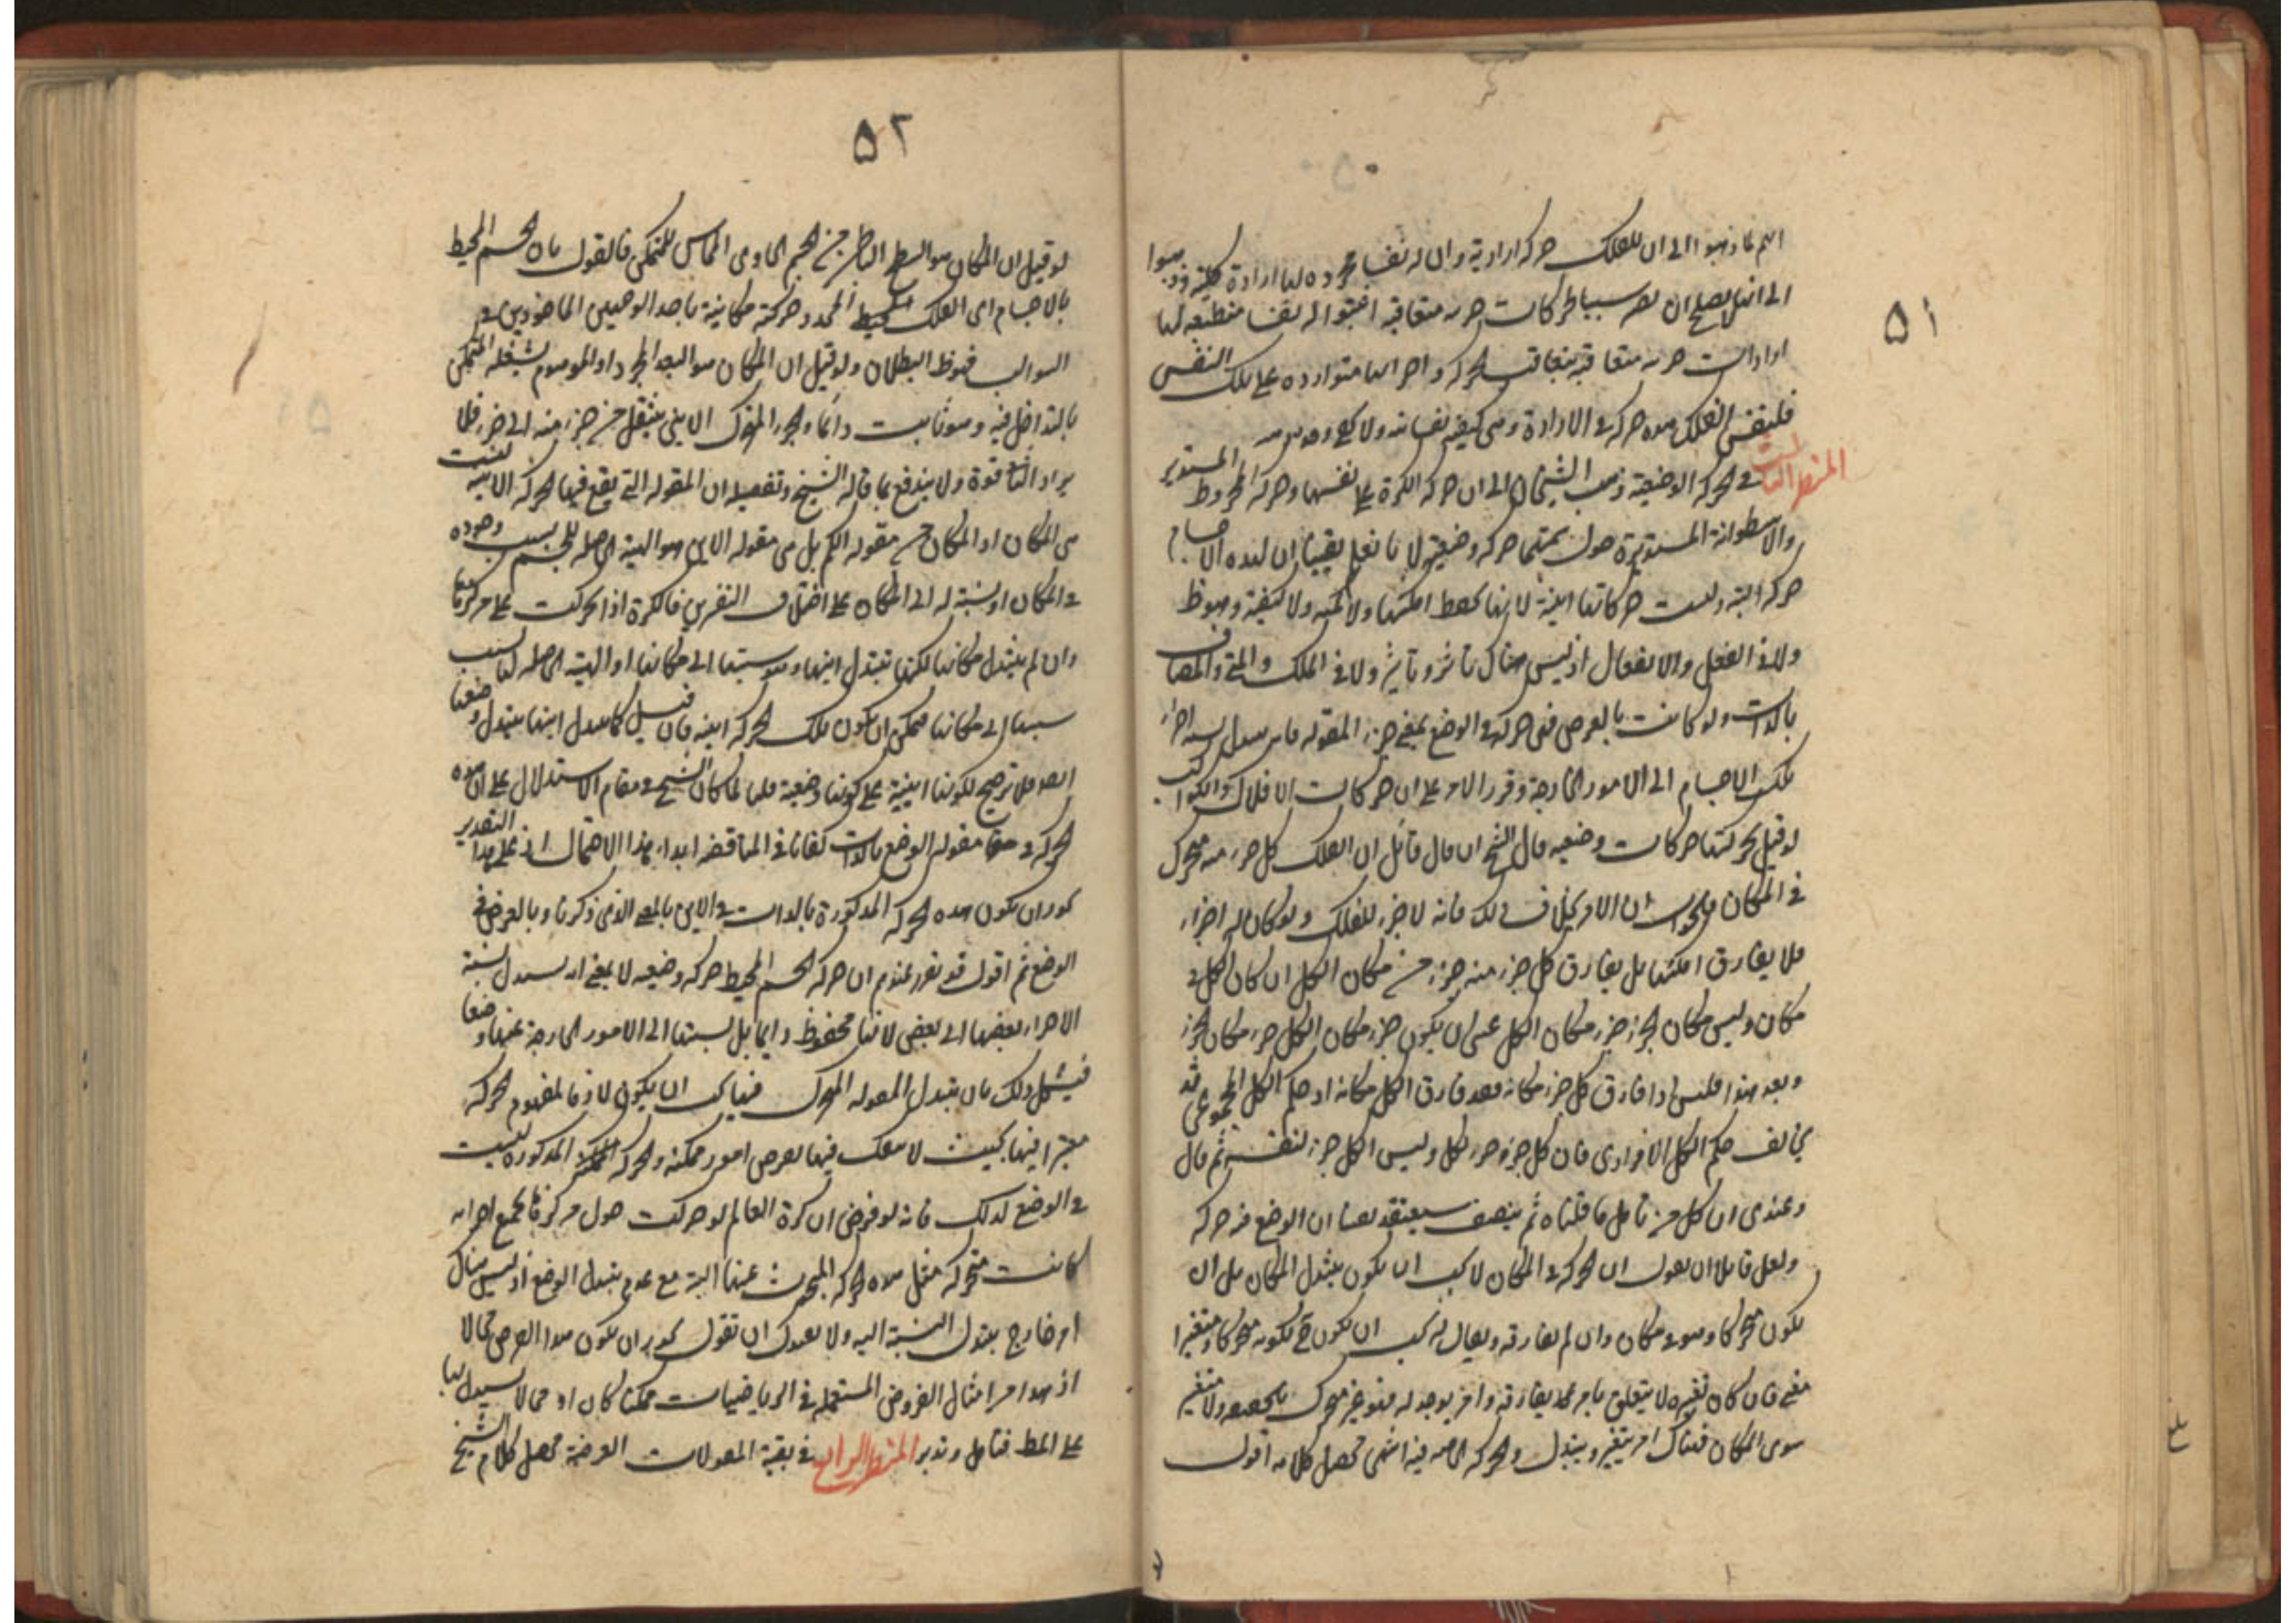 ٥١
انهم لما ذهبوا الى ان للفلك حركة ارادية وان له نفسا مجردة لها ارادة كلية وذهبوا
الى انها لا يصلح ان يصير سببا لحركات جزئية متعاقبة اثبتوا له نفسا منطبعة لها
ارادات جزئية متعاقبة بتعاقب الحركة واجزائها متواردة على تلك النفس
فلنفس الفلك هذه حركة في الارادة وهي كيفية نفسانية ولا
المنظر الثالث في الحركة الوضعية ذهب الشيخان الى ان حركة الكرة على نفسها وحركة المخروط المستدير
والاسطوانة المستديرة حول سهمهما حركة وضعية لانا نعلم يقينا ان لهذه الاجسام
حركة البتة وليست حركاتها اينية لانها تحفظ امكنتها ولا كمية ولا كيفية وهو ظ
ولا في الفعل والانفعال اذ ليس هناك تأثر وتأثير ولا في الملك والمتى والمضاف
بالذات ولو كانت بالعرض فهي حركة في الوضع بمعنى جزء المقولة فانه يتبدل نسبة اجزاء
تلك الاجسام الى الامور الخارجة وقرر الامر على ان حركات الافلاك والكواكب
لو قيل بحركتها حركات وضعية قال الشيخ ان قال قائل ان الفلك كل جزء منه متحرك
في المكان فالجواب ان الامر بخلاف ذلك فانه لا جزء للفلك ولو كان له اجزاء
فلا يفارق امكنتها بل يفارق كل جزء منه جزء من مكان الكل ان كان الكل في
مكان وليس مكان الجزء جزء مكان الكل عسى ان يكون جزء مكان الكل جزء مكان الجزء
وبعد هذا فليس اذا فارق كل جزء مكانه فقد فارق الكل مكانه اذ حكم الكل المجموعي قد
يخالف حكم الكل الافرادي فان كل جزء جزء الكل وليس الكل جزء لنفسه ثم قال
وعندي ان كل من تأمل ما قلناه ثم ينصف سيعتقد يقينا ان الوضع فيه حركة
ولعل قائلا ان يقول ان الحركة في المكان لا يجب ان يكون بتبدل المكان بل ان
يكون متحركا وهو في مكان وان لم يفارقه ويقال له يجب ان يكون ح لكونه متحركا ومتغيرا
معنى فان كان تغيره لا يتعلق بامر يفارقه وامر يوجد له فهو غير متحرك بالحقيقة ولا متغير
سوى المكان فهناك امر يتغير ويتبدل والحركة فيه انتهى محصل كلامه اقول
٥٢
لو قيل ان المكان هو السطح الباطن من الجسم الحاوي المماس للمتمكن فالقول بان الجسم المحيط
بالاجسام اي الفلك المحيط المحدد حركته مكانية باحد الوجهين الماخوذين في
السؤال فهو ظ البطلان ولو قيل ان المكان هو البعد المجرد او الموهوم يشغله المتمكن
بالتداخل فيه وهو ثابت دائما والجزء المتحرك الايني ينتقل من جزء منه الى جزء فلا
يراد الثاني قوة ولا يندفع بما قاله الشيخ وتفصيله ان المقولة التي يقع فيها الحركة الاينية ليست
هي المكان او المكان من مقولة الكم بل هي مقولة الاين وهو الهيئة الحاصلة للجسم بسبب وجوده
في المكان او نسبة له الى المكان على اختلاف التفسيرين فالكرة اذا تحركت على مركزها
وان لم يتبدل مكانها لكنها تتبدل اينها وهو نسبتها الى مكانها او الهيئة الحاصلة لها بسبب
نسبتها الى مكانها فيمكن ان يكون تلك الحركة اينية فان قيل كما يتبدل اينها يتبدل وضعها
ايضا فلا ترجيح لكونها اينية على كونها وضعية قلنا لما كان الشيخ في مقام الاستدلال على ان هذه
الحركة في مقولة الوضع بالذات كفانا في المناقضة ابداء هذا الاحتمال اذ على هذا التقدير
يجوز ان يكون هذه الحركة المذكورة بالذات في الاين بالمعنى الذي ذكرنا وبالعرض في
الوضع ثم اقول قد تقرر عندهم ان حركة الجسم المحيط حركة وضعية لا بمعنى انه يتبدل نسبة
الاجزاء بعضها الى بعض لانها محفوظ دائما بل نسبتها الى الامور الخارجة عنها وضعا
فيشكل ذلك بان تبدل المقولة المتحرك فيها يجب ان يكون لازما لمفهوم الحركة
معتبرا فيها بحيث لا ينفك فيها بعرض امور ممكنة والحركة الممكنة المذكورة ليست
في الوضع كذلك فانه لو فرض ان كرة العالم لو حركت حول مركزها بجميع اجزائه
كانت متحركة مثل هذه الحركة المبحوث عنها البتة مع عدم تبدل الوضع اذ ليس هناك
امر خارج يتبدل النسبة اليه ولا يعذرك ان تقول يجوز ان يكون هذا الفرض محالا
اذ هذا من امثال الفروض المستعملة في الرياضيات ممكنا كان او محالا يستدل بها
على المط فتأمل وتدبر المنظر الرابع في بقية المقولات العرضية محصل كلام الشيخ